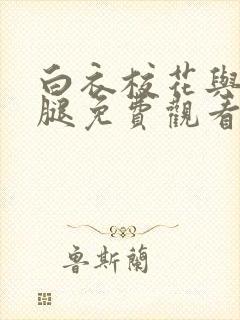 白衣校花與
腿免費觀看
魯斯蘭